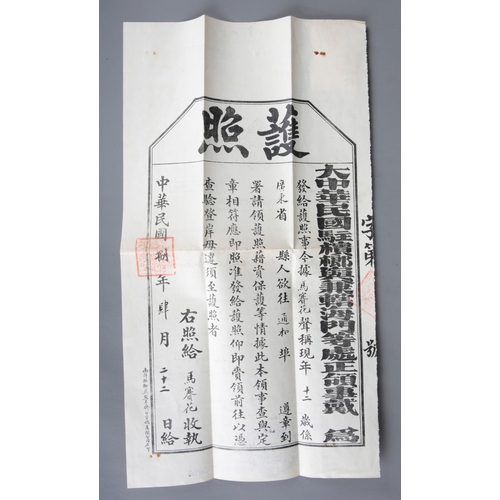 護照
字第 號
大中華民國駐檳榔嶼兼轄海門等處正領事戴 為
發給護照事今據 馬賽花 聲稱現年 十二 歲係
廣東省 縣人欲往 通扣 埠 遵章到
署請領護照藉資保護等情據此本領事查與定
章相符應即照准發給護照仰即賫領前往以憑
查驗登岸毋違須至護照者
右照給 馬賽花 收執
中華民國 捌 年 肆 月 二十二 日給